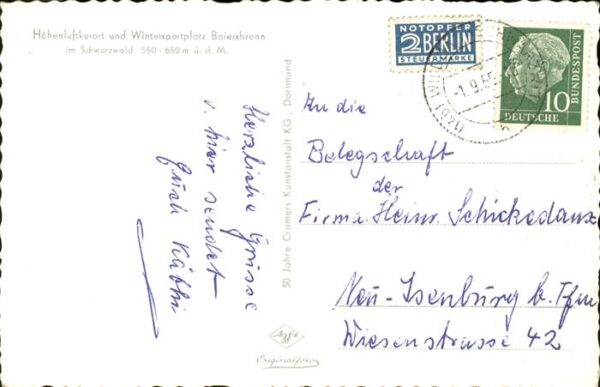 Höhenluftkurort und Wintersportplatz Baiersbronn
im Schwarzwald, 550-650 m ü. d. M.
NOTOPFER
2 BERLIN
STEUERMARKE
10
DEUTSCHE
BUNDESPOST
-1.9.55
Herzliche Grüsse
v. hier sendet
Euch Käthi
50 Jahre Cramers Kunstanstalt KG., Dortmund
An die
Belegschaft
der
Firma Heinr. Schickedanz
Neu-Isenburg b. Ffm
Wiesenstrasse 42
Agfa
Originalfoto